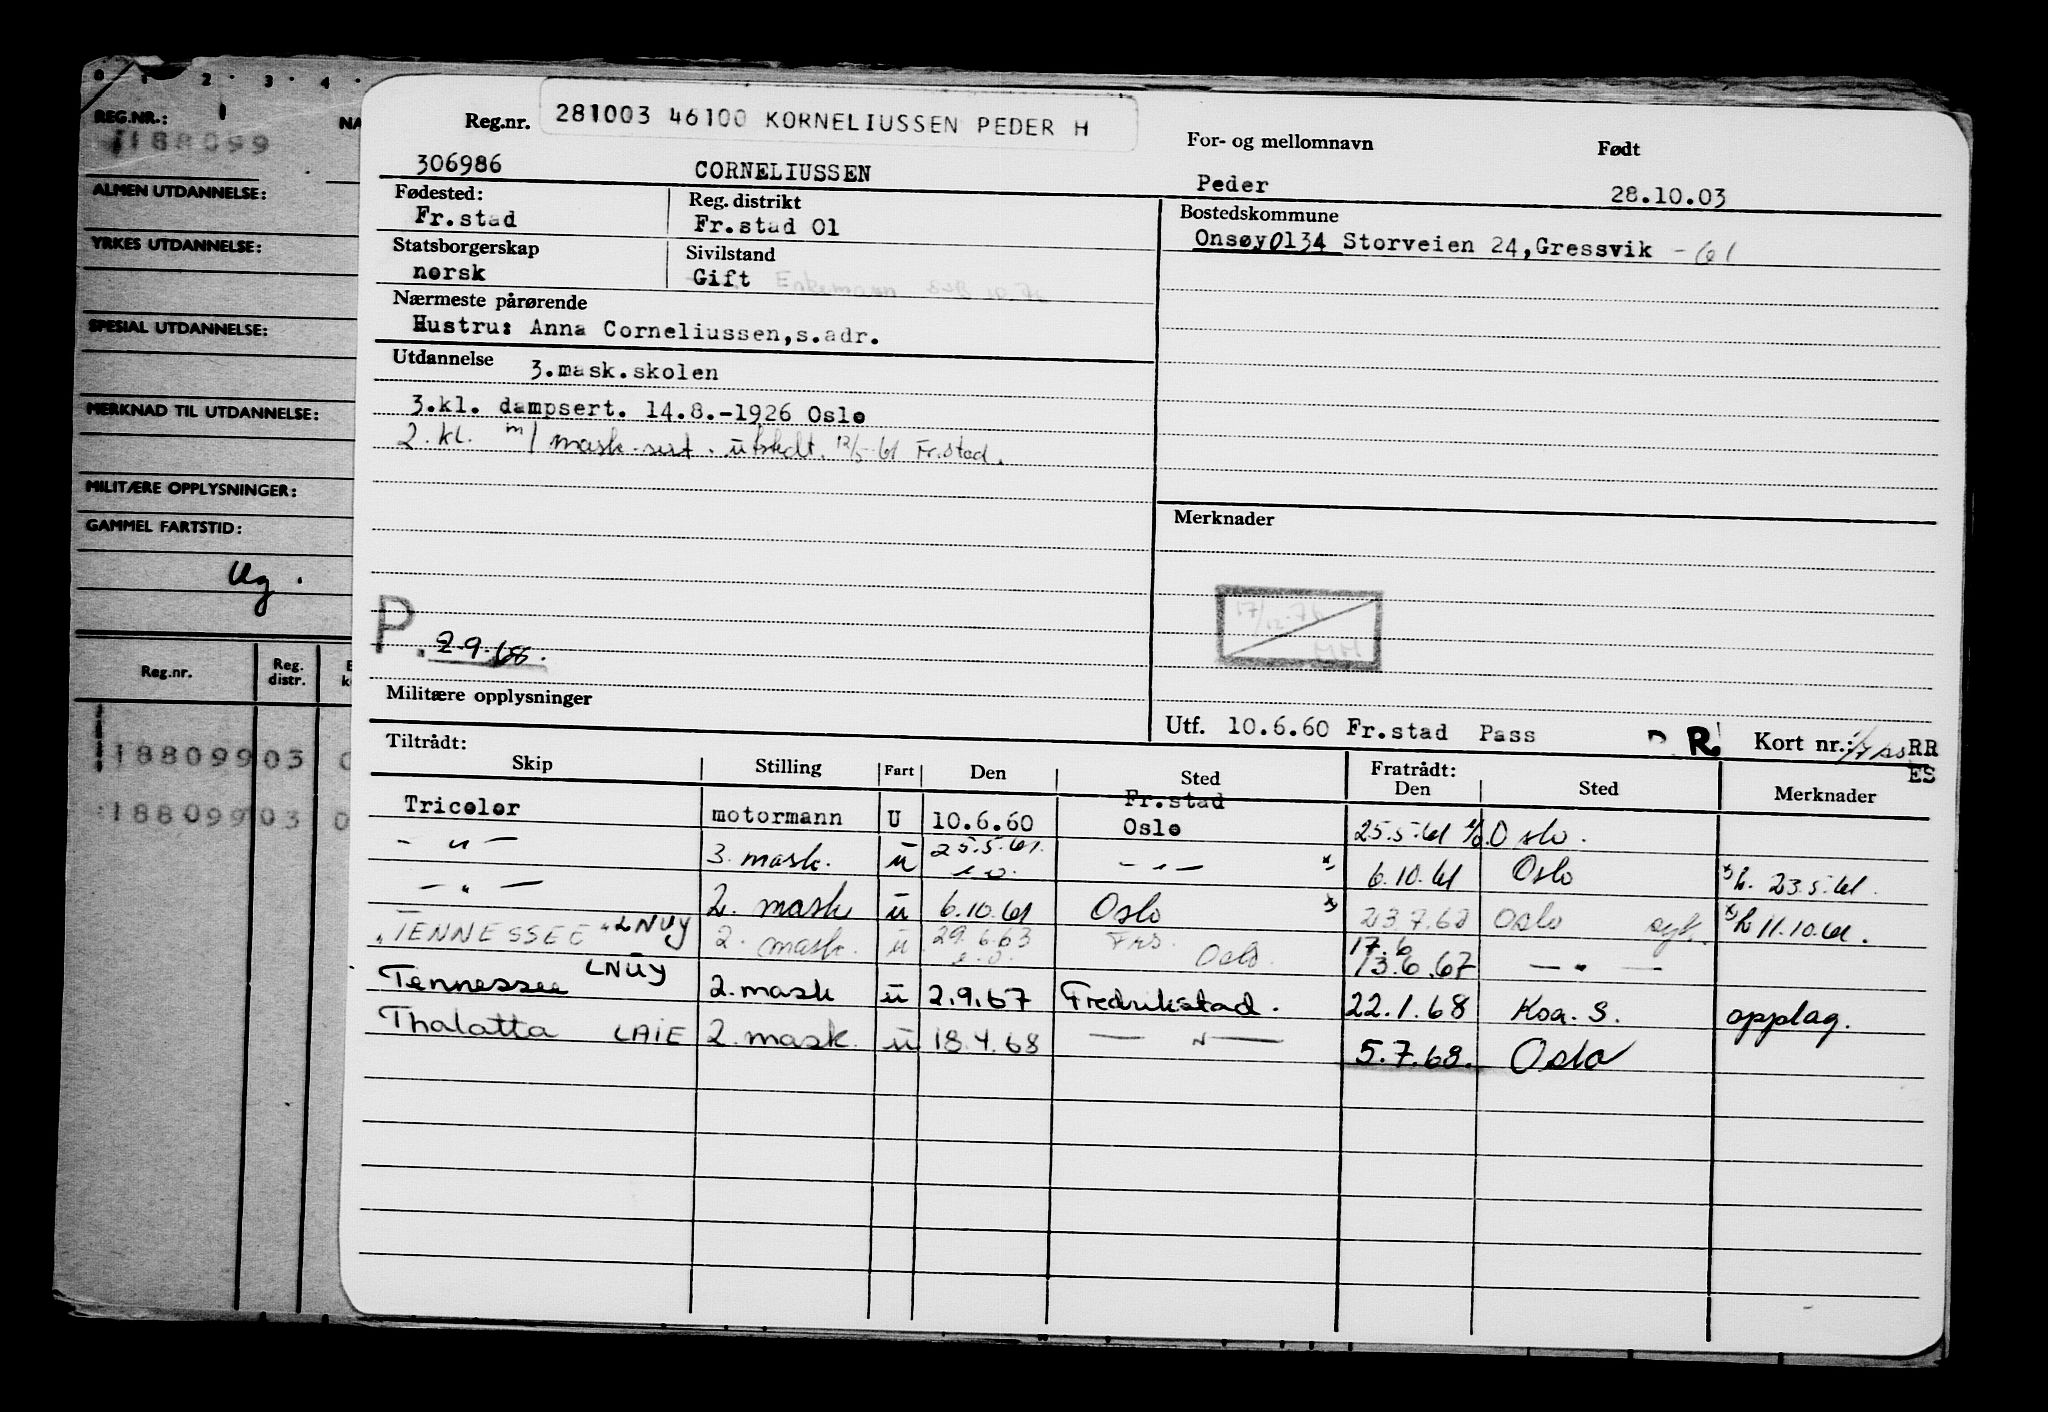 0 1 2 3 4
REG.NR.: NA
188099
ALMEN UTDANNELSE:
YRKES UTDANNELSE:
SPESIAL UTDANNELSE:
MERKNAD TIL UTDANNELSE:
MILITÆRE OPPLYSNINGER:
GAMMEL FARTSTID:
Ug.
Reg.nr. Reg. distr.
188099 03 0
188099 03 0
Reg.nr. 281003 46100 KORNELIUSSEN PEDER H For- og mellomnavn Født
306986 CORNELIUSSEN Peder 28.10.03
Fødested: Reg. distrikt Bostedskommune
Fr.stad Fr.stad 01 Onsøy 0134 Storveien 24, Gressvik - 61
Statsborgerskap Sivilstand
norsk Gift Enkemann
Nærmeste pårørende
Hustru: Anna Corneliussen, s.adr.
Utdannelse 3.mask.skolen
3.kl. dampsert. 14.8.-1926 Oslo
2. kl. m/ mask. sert. utstedt. 12/5-61 Fr.stad.
Merknader
17/12-76
MM
P. 2.9.68.
Militære opplysninger
Utf. 10.6.60 Fr.stad Pass R Kort nr.: RR
ES
Tiltrådt: Fratrådt:
Skip Stilling Fart Den Sted Den Sted Merknader
Tricolor motormann U 10.6.60 Fr.stad Oslo 25.5.61 Oslo.
- " - 3. mask. u 25.5.61. - " - x) 6.10.61 Oslo x) h. 23.5.61.
- " - 2. mask u 6.10.61 Oslo x) 23.7.62 Oslo syk. x) h 11.10.61.
"TENNESSEE" LNUY 2. mask. u 29.6.63 Frs. Oslo. 17.6 13.6.67 - " -
Tennessee LNUY 2. mask u 2.9.67 Fredrikstad. 22.1.68 Koa. S. opplag.
Thalatta LAIE 2. mask. u 18.4.68 - " - 5.7.68. Oslo